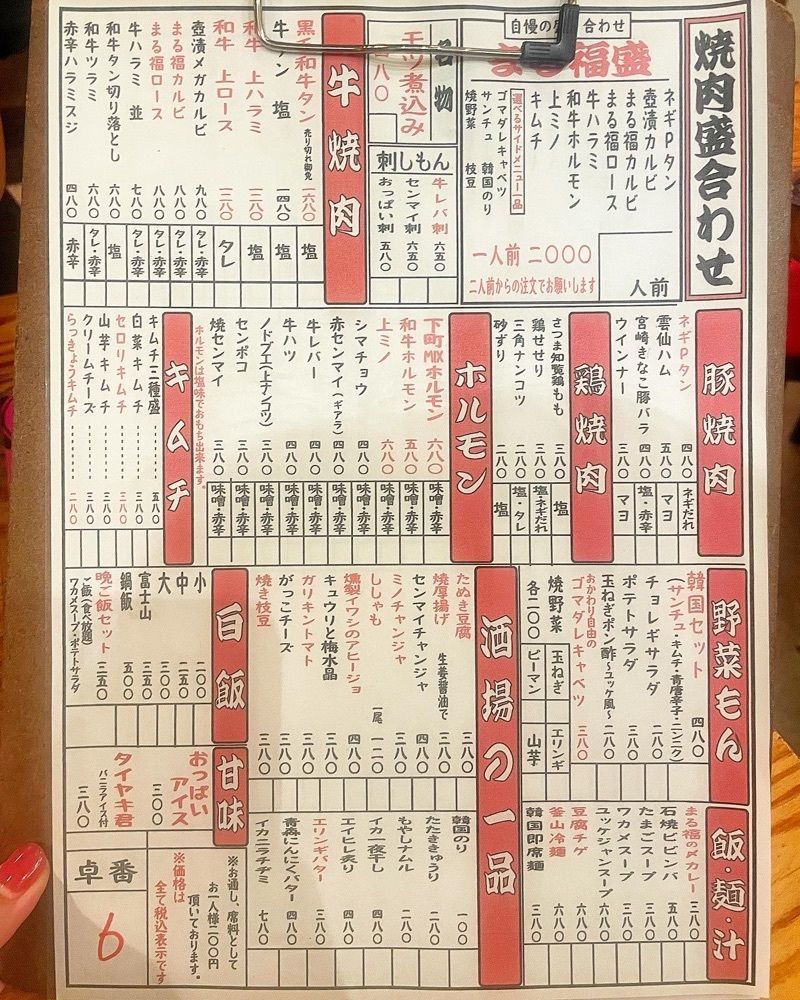 焼肉盛合わせ
合わせ
まる福盛
ネギPタン
壺漬カルビ
まる福カルビ
まる福ロース
牛ハラミ
和牛ホルモン
上ミノ
キムチ
選べるサイドメニュー一品
ゴマダレキャベツ
サンチュ 韓国のり
焼野菜 枝豆
一人前 二〇〇〇
二人前からの注文でお願いします
人前
名物
モツ煮込み
八〇
刺しもん
牛レバ刺 六五〇
センマイ刺 六五〇
おっぱい刺 五八〇
牛焼肉
黒毛和牛タン 売り切れ御免 一六八〇 塩
牛タン 塩 一四八〇 塩
和牛 上ハラミ 一三八〇 塩
和牛 上ロース 一二八〇 タレ
壺漬メガカルビ 九八〇 タレ・赤辛
まる福カルビ 八八〇 タレ・赤辛
まる福ロース 八八〇 タレ・赤辛
牛ハラミ 並 七八〇 タレ・赤辛
和牛タン切り落とし 六八〇 塩
和牛ツラミ 六八〇 タレ・赤辛
赤辛ハラミスジ 四八〇 赤辛
豚焼肉
ネギPタン 四八〇 ネギだれ
雲仙ハム 五八〇 マヨ
宮崎きなこ豚バラ 四八〇 塩・赤辛
ウインナー 三八〇 マヨ
鶏焼肉
さつま知覧鶏もも 三八〇 塩
鶏せせり 三八〇 塩・ネギだれ
三角ナンコツ 二八〇 塩・タレ
砂ずり 二八〇 塩
ホルモン
下町MIXホルモン 六八〇 味噌・赤辛
和牛ホルモン 五八〇 味噌・赤辛
上ミノ 六八〇 味噌・赤辛
シマチョウ 四八〇 味噌・赤辛
赤センマイ(ギアラ) 四八〇 味噌・赤辛
牛レバー 四八〇 味噌・赤辛
牛ハツ 四八〇 味噌・赤辛
ノドブエ(上ナンコツ) 三八〇 味噌・赤辛
センポコ 三八〇 味噌・赤辛
焼センマイ 三八〇 味噌・赤辛
ホルモンは塩味でおもち出来ます。
キムチ
キムチ三種盛 五八〇
白菜キムチ 三八〇
セロリキムチ 三八〇
山芋キムチ 三八〇
クリームチーズ 三八〇
らっきょうキムチ 二八〇
野菜もん
韓国セット 四八〇
(サンチュ・キムチ・青唐辛子・ニンニク)
チョレギサラダ 三八〇
ポテトサラダ 二八〇
玉ねぎポン酢〜ユッケ風〜 二八〇
おかわり自由の
ゴマダレキャベツ 三八〇
焼野菜 玉ねぎ エリンギ
各二〇〇 ピーマン 山芋
飯・麺・汁
まる福の〆カレー 三八〇
石焼ビビンバ 五八〇
たまごスープ 三八〇
ワカメスープ 三八〇
ユッケジャンスープ 六八〇
豆腐チゲ 六八〇
釜山冷麺 六八〇
韓国即席麺 三八〇
酒場の一品
たぬき豆腐 三八〇
焼厚揚げ 生姜醤油で 三八〇
センマイチャンジャ 四八〇
ミノチャンジャ 三八〇
ししゃも 一尾 一二〇
燻製イワシのアヒージョ 四八〇
キュウリと梅水晶 三八〇
ガリキントマト 三八〇
がっこチーズ 三八〇
焼き枝豆 三八〇
韓国のり 一〇〇
たたききゅうり 二八〇
もやしナムル 二八〇
イカ一夜干し 四八〇
エイヒレ炙り 四八〇
エリンギバター 三八〇
青森にんにくバター 四八〇
イカニラチヂミ 七八〇
白飯
小 二〇〇
中 二五〇
大 三〇〇
富士山 五〇〇
鍋飯
晩ご飯セット 二五〇
ご飯(食べ放題)
ワカメスープ・ポテトサラダ
甘味
おっぱいアイス 三〇〇
タイヤキ君 三八〇
バニラアイス付
※お通し、席料として
お一人様二〇〇円
頂いております。
※価格は
全て税込表示です
卓番
6